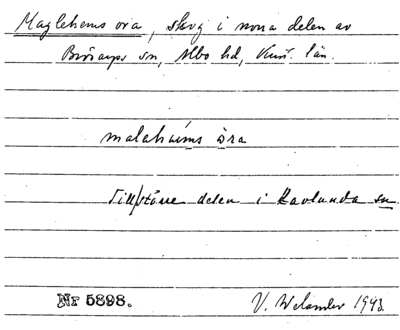 Maglehems ora, skog i norra delen av
Brösarps sn, Albo hd, Krist. län.
malahaims åra
Till större delen i Ravlunda sn
Nr 5898.
V. Welander 1943